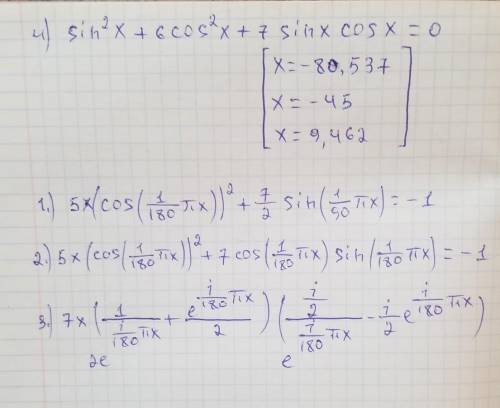 4) sin²x + 6cos²x + 7 sinx cosx = 0
x = -80,537
x = -45
x = 9,462
1.) 5x(cos(1/180 πx))² + 7/2 sin(1/90 πx) = -1
2.) 5x(cos(1/180 πx))² + 7 cos(1/180 πx) sin(1/180 πx) = -1
3.) 7x(1/(2e^(i/180 πx)) + e^(i/180 πx)/2)((i/2)/(e^(i/180 πx)) - i/2 e^(i/180 πx))